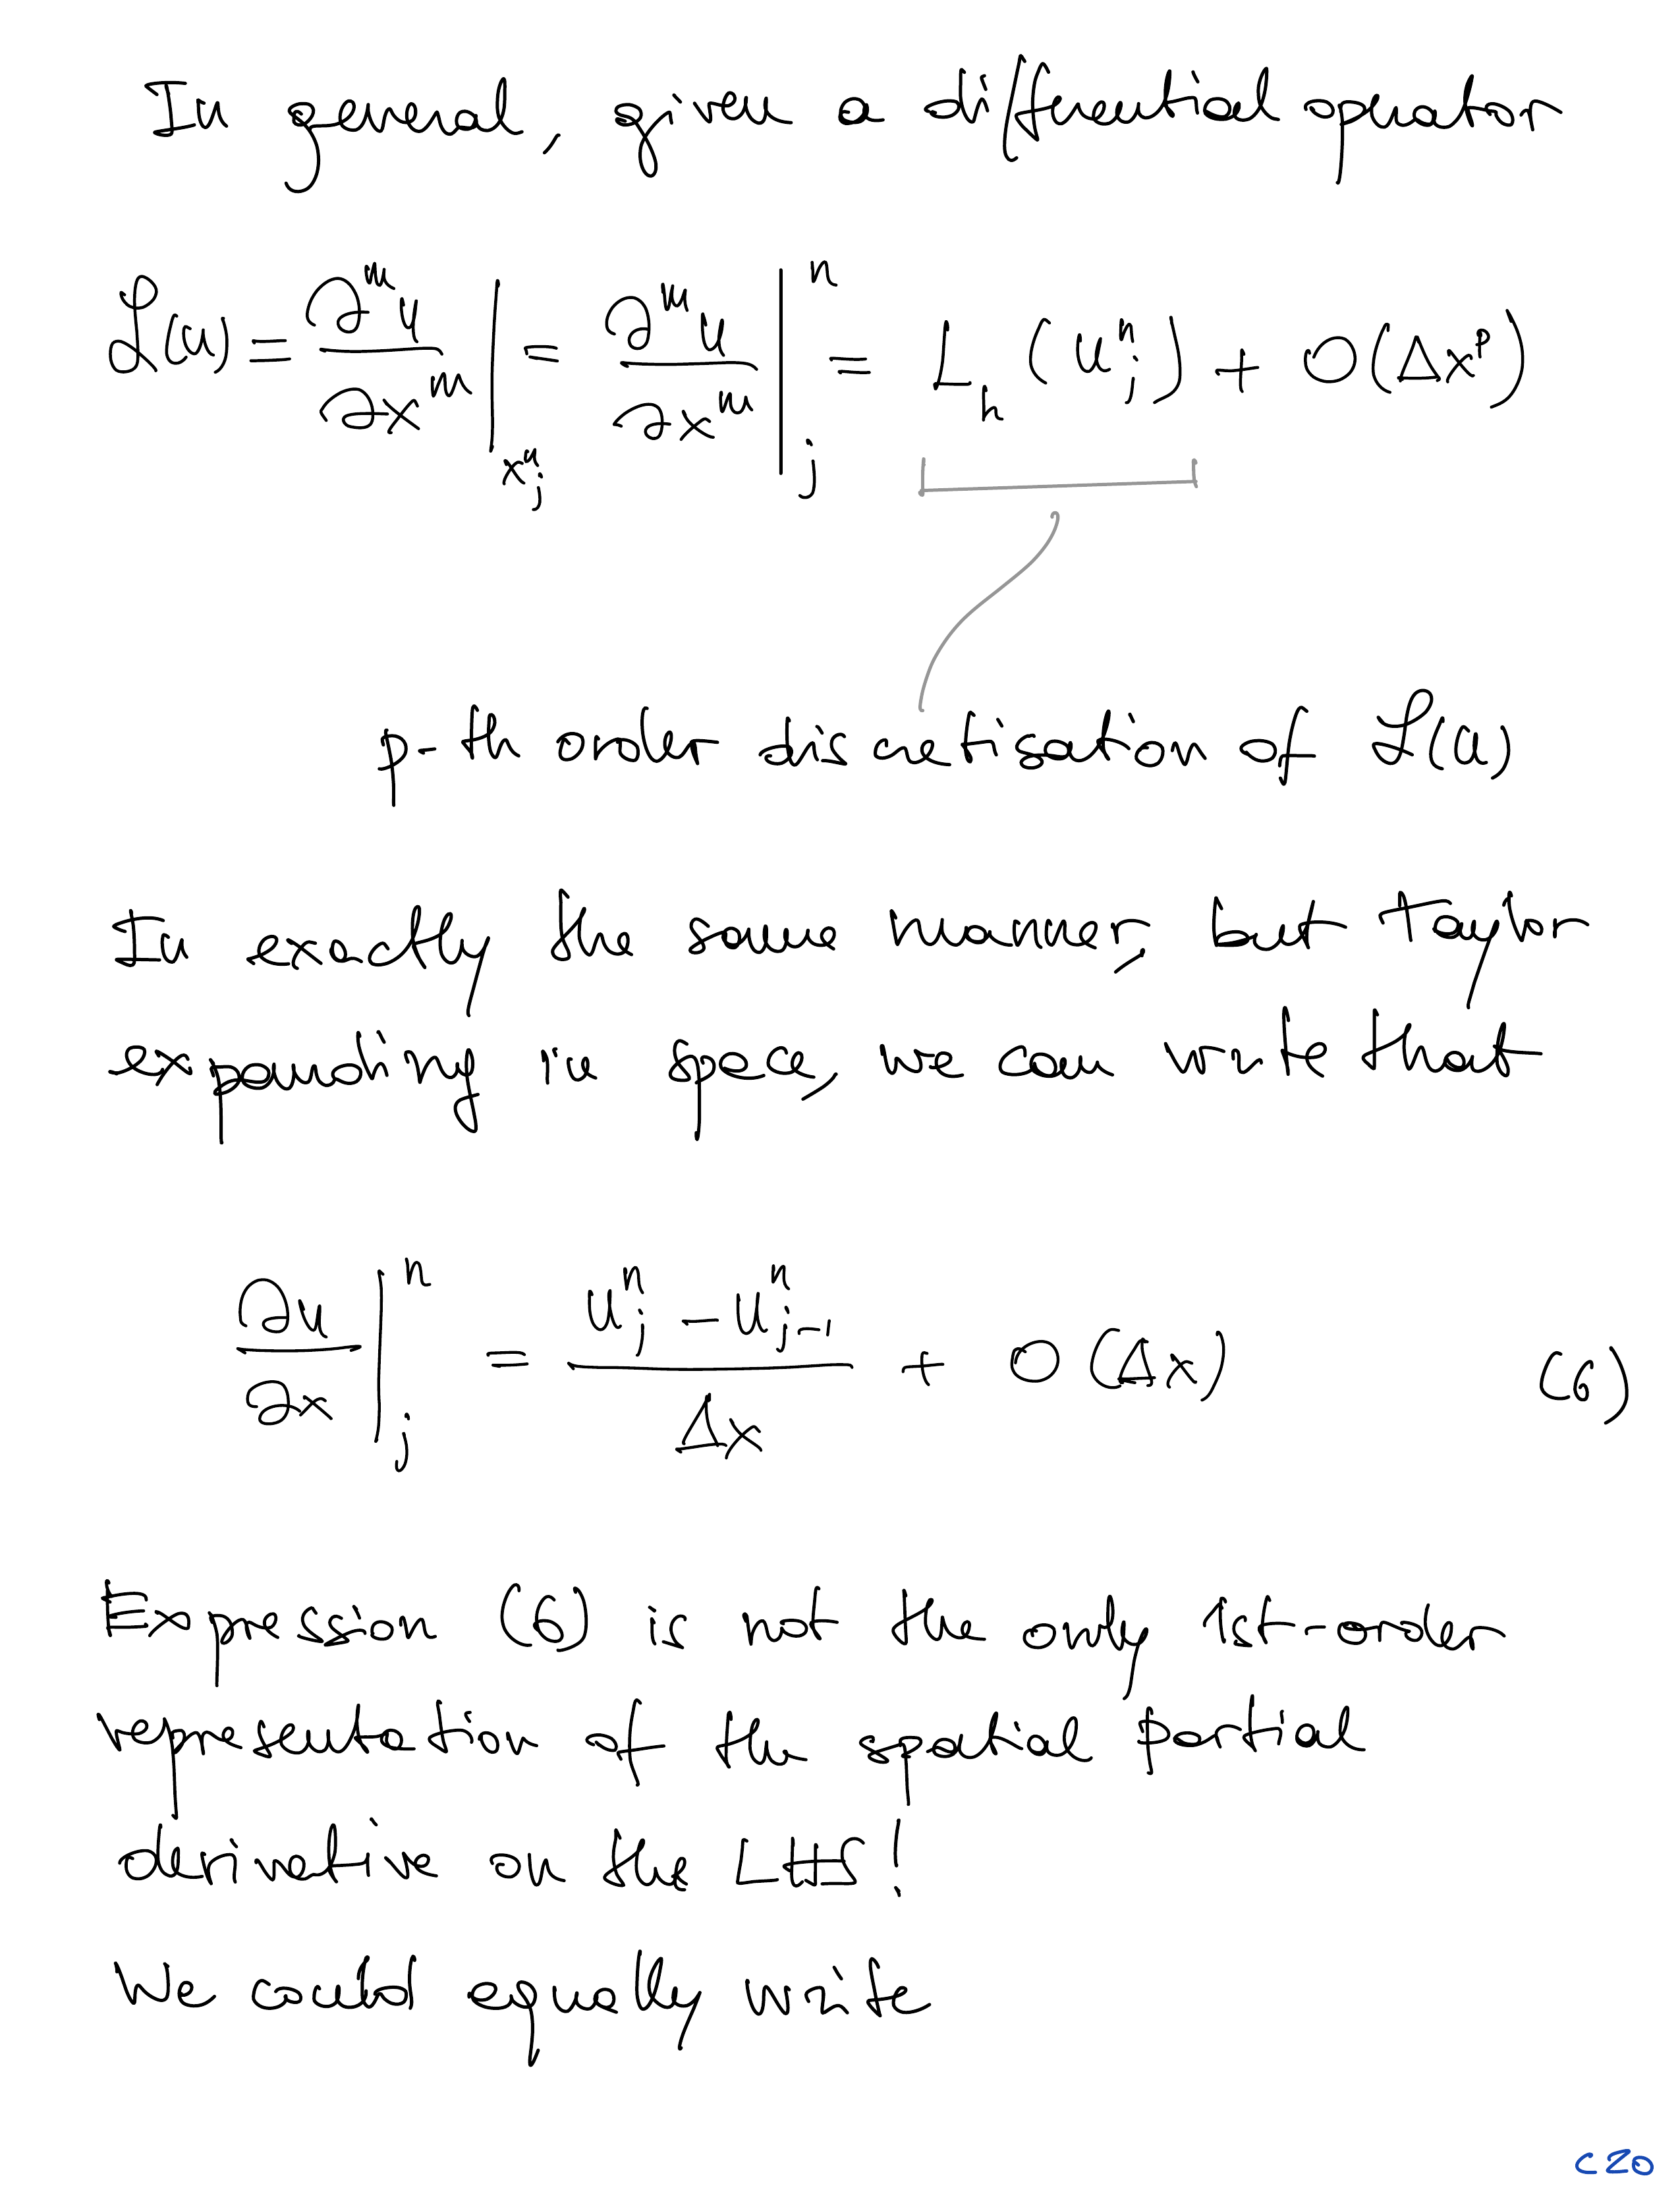 In general, given a differential operator
$\mathcal{L}(u) = \left.\frac{\partial^m u}{\partial x^m}\right|_{x^n_j} = \left.\frac{\partial^m u}{\partial x^m}\right|^n_j = L_h(u^n_j) + O(\Delta x^p)$
p-th order discretisation of $\mathcal{L}(u)$
In exactly the same manner, but Taylor
expanding in space, we can write that
$\left.\frac{\partial u}{\partial x}\right|^n_j = \frac{u^n_j - u^n_{j-1}}{\Delta x} + O(\Delta x)$ (6)
Expression (6) is not the only 1st-order
representation of the spatial partial
derivative on the LHS!
We could equally write
C20